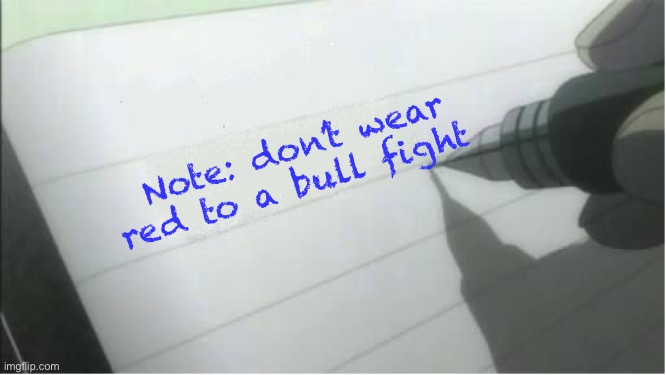 Note: don't wear
red to a bull fight
imgflip.com